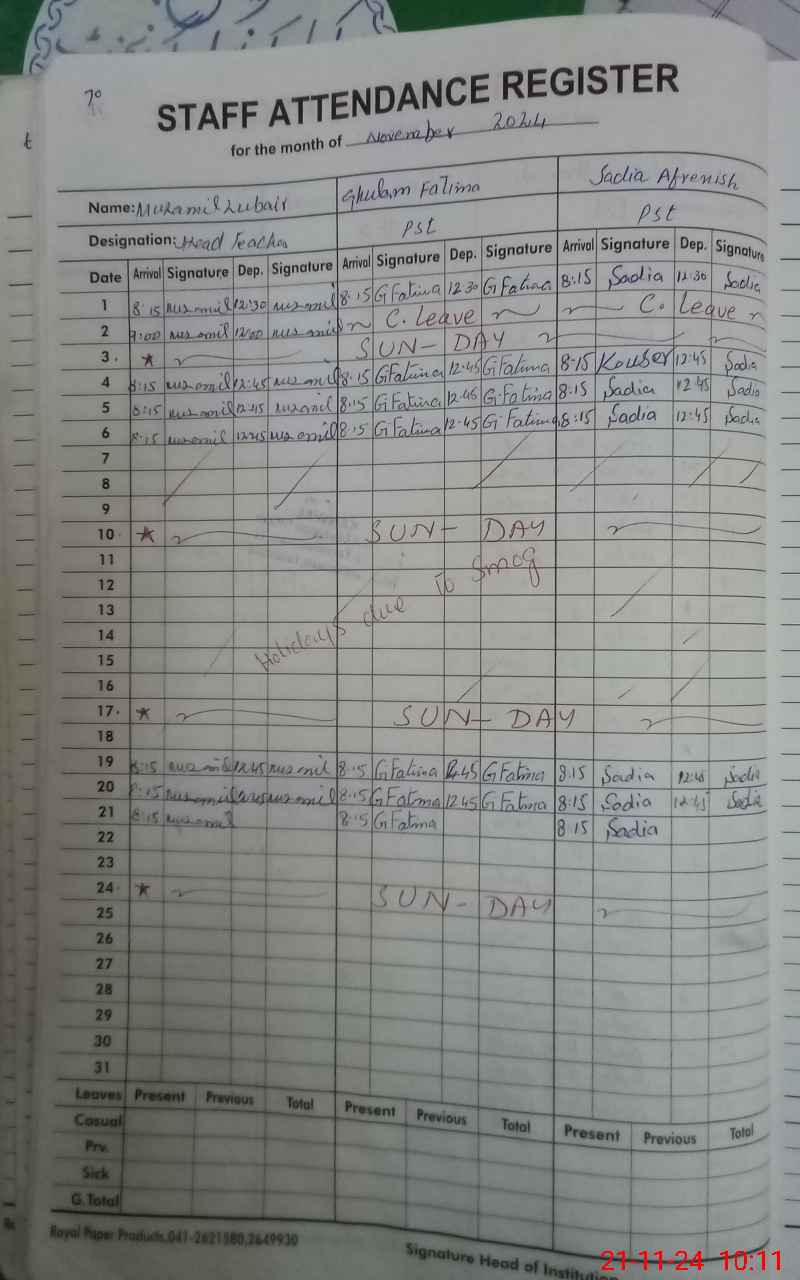 70
STAFF ATTENDANCE REGISTER
for the month of November 2024
Name: Muzamil Zubair Ghulam Fatima Sadia Afrenish
Designation: Head Teacher Pst Pst
Date Arrival Signature Dep. Signature Arrival Signature Dep. Signature Arrival Signature Dep. Signature
1 8:15 muzamil 12:30 muzamil 8:15 G Fatima 12 30 G Fatima 8:15 Sadia 12:30 Sadia
2 9:00 muzamil 12:00 muzamil C. Leave C. Leave
3. ★ SUN- DAY
4 8:15 muzamil 12:45 muzamil 8:15 G Fatima 12:45 G Fatima 8:15 Kouser 12:45 Sadia
5 8:15 muzamil 12:45 muzamil 8:15 G Fatima 12:45 G. Fatima 8:15 Sadia 12 45 Sadia
6 8:15 muzamil 12:45 muzamil 8:15 G Fatima 12:45 G Fatima 8:15 Sadia 12:45 Sadia
7
8
9
10. ★ SUN- DAY
11
12
Holidays due To Smog
13
14
15
16
17. ★ SUN- DAY
18
19 8:15 muzamil 12:45 muzamil 8:15 G Fatima 12:45 G Fatima 8:15 Sadia 12:45 Sadia
20 8:15 muzamil 12:45 muzamil 8:15 G Fatma 12:45 G Fatima 8:15 Sadia 12:45 Sadia
21 8:15 muzamil 8:15 G Fatma 8:15 Sadia
22
23
24. ★ SUN- DAY
25
26
27
28
29
30
31
Leaves Present Previous Total Present Previous Total Present Previous Total
Casual
Prv.
Sick
G. Total
Royal Paper Products,041-2621580,2649930
Signature Head of Institution
21-11-24 10:11